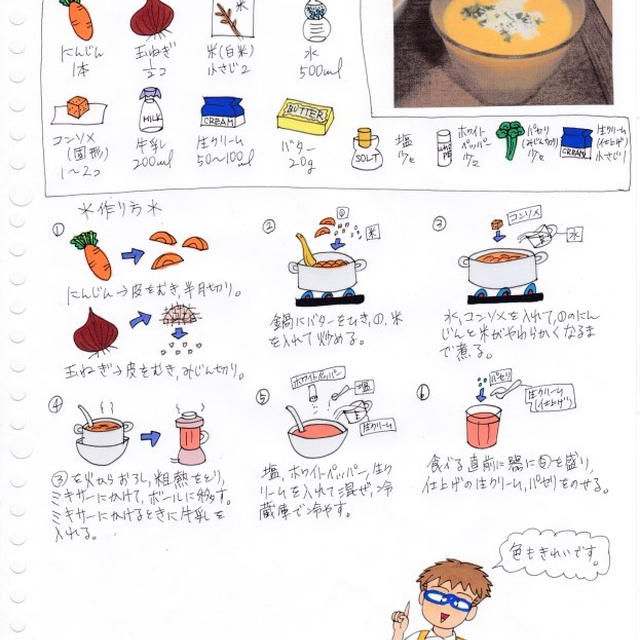 にんじん
1本
玉ねぎ
½コ
米
米(白米)
小さじ2
水
500ml
コンソメ
(固形)
1〜2コ
MILK
牛乳
200ml
CREAM
生クリーム
50〜100ml
BUTTER
バター
20g
SOLT
塩
少々
ホワイト
ペッパー
少々
パセリ
(みじん切り)
少々
CREAM
生クリーム
(仕上げ)
小さじ1
*作り方*
①
にんじん→皮をむき,半月切り。
玉ねぎ→皮をむき,みじん切り。
②
①
米
鍋にバターをひき,①,米
を入れて炒める。
③
コンソメ
水
水,コンソメを入れて,①のにん
じんと米がやわらかくなるま
で煮る。
④
③を火からおろし,粗熱をとり,
ミキサーにかけて,ボールに移す。
ミキサーにかけるときに牛乳を
入れる。
⑤
ホワイトペッパー
塩
生クリーム
塩,ホワイトペッパー,生ク
リームを入れて混ぜ,冷
蔵庫で冷やす。
⑥
パセリ
生クリーム
(仕上げ)
食べる直前に器に⑤を盛り,
仕上げの生クリーム,パセリをのせる。
色もきれいです。